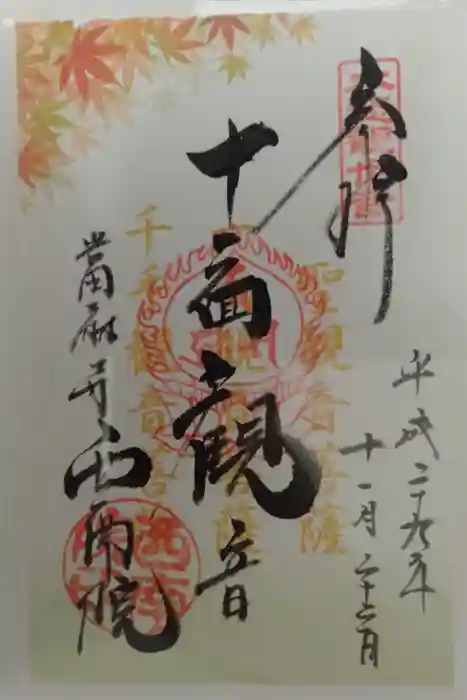 奉拝
平成二十九年
十一月二十六日
聖觀音菩薩
十一面観音
千手觀音菩薩
當麻寺西南院